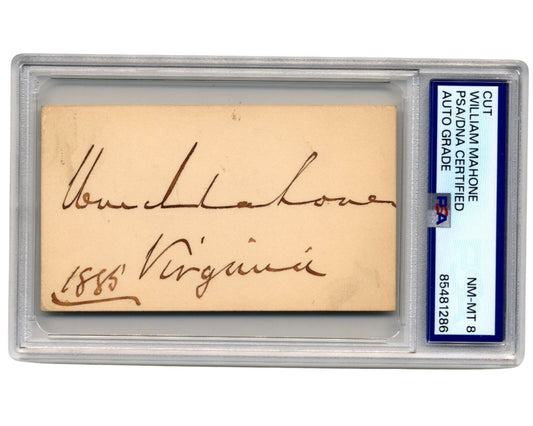 Wm Mahone
Virginia
1885
CUT
WILLIAM MAHONE
PSA/DNA CERTIFIED
AUTO GRADE
PSA
NM-MT 8
85481286